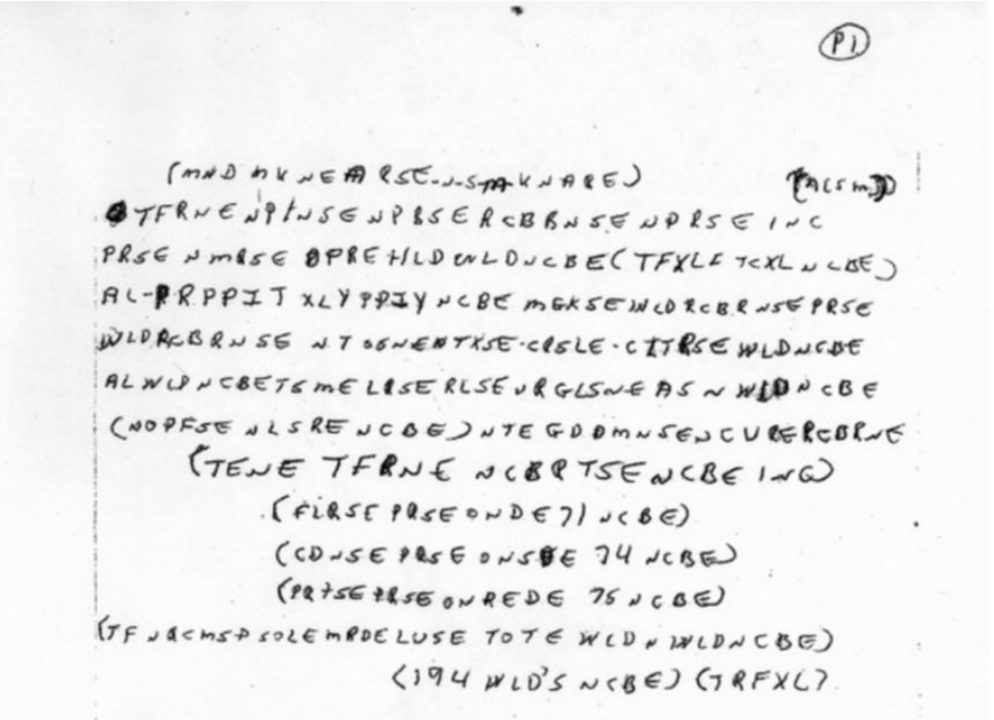 P1
(MND MKNEARSE-N-S-M-KNARE) (ACSM)
TFRNENPINSENPBSERCBBRNSENPRSEINC
PRSENMRSEOPREHLDWLDNCBE(TFXLFTCXLNCBE)
AL-PRPPIT XLYPPIYNCBE MGKSEWLDRCBRNSEPRSE
WLDRCBRNSE NTSGNENTXSE-CRSLE-CITRSEWLDNCBE
ALWLDNCBETSMELRSERLSEURGLSNEASNWLDNCBE
(NOPFSENLSRENCBE)NTEGDDMNSENCURERCBRNE
(TENE TFRNE NCBRTSENCBEING)
(FLRSE PRSEONDE71NCBE)
(CDNSEPRSEONSDE74NCBE)
(PRTSEPRSEONREDE 75NCBE)
(TFNRCMSPSOLEMRDELUSE TOTE WLDNWLDNCBE)
(194 WLD'S NCBE)(TRFXL)